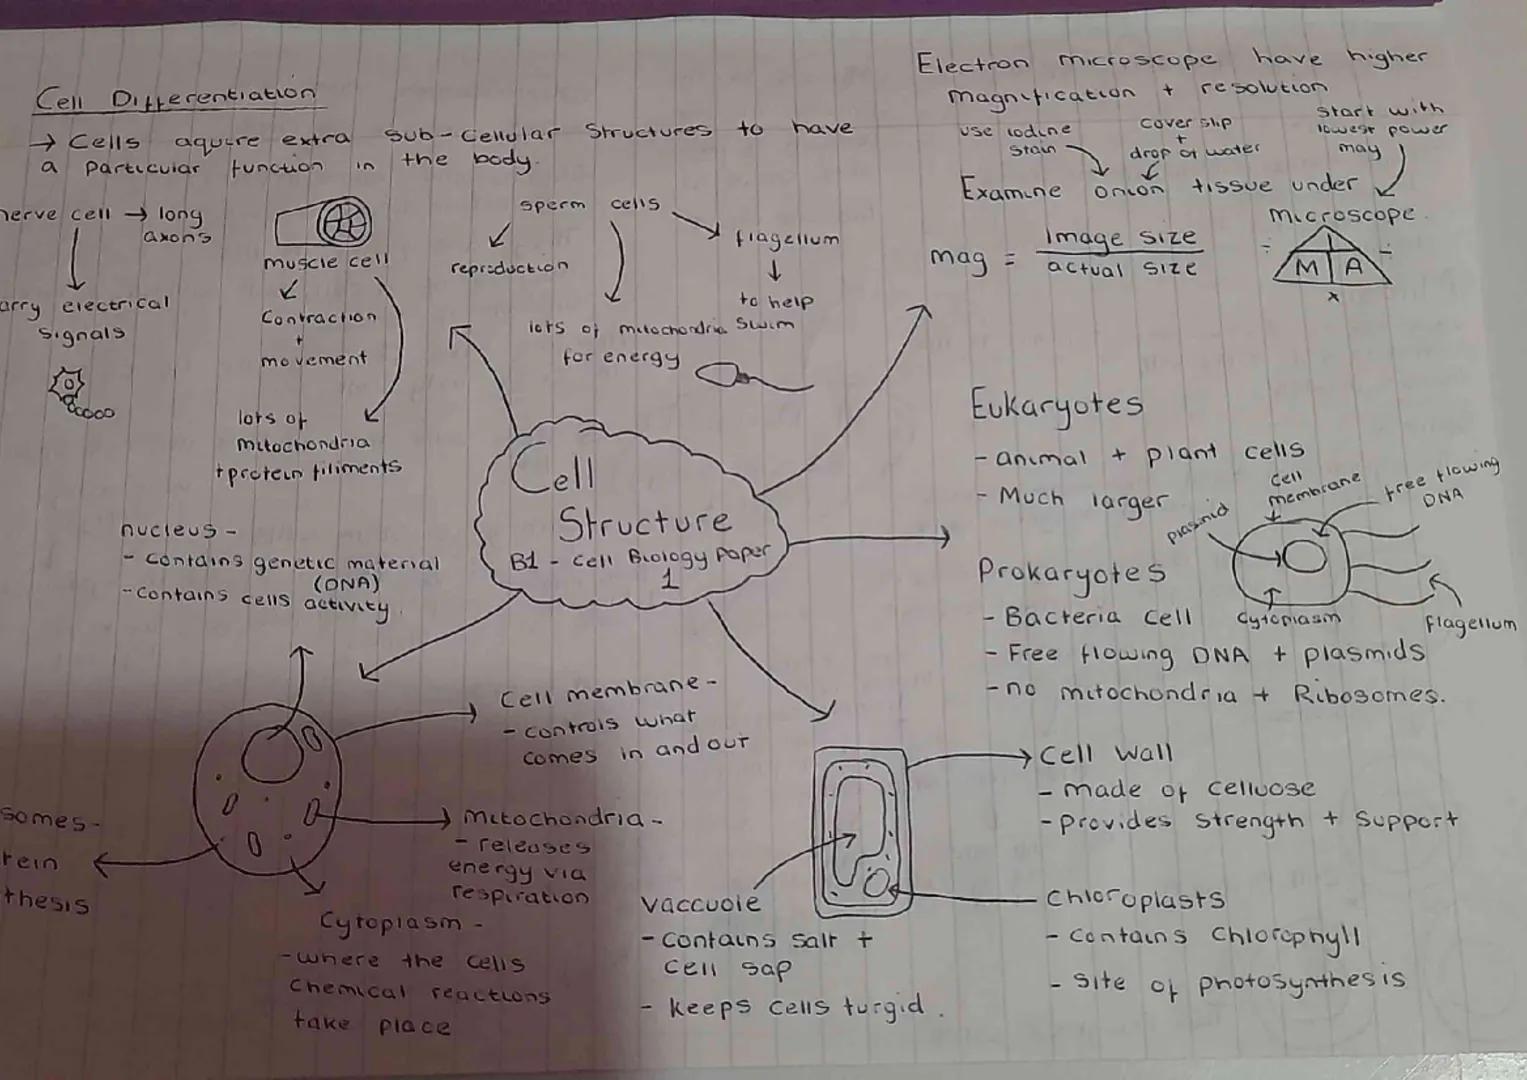 Cell Differentiation
→ Cells aquire extra sub-cellular structures to have
a particular function in the body.
nerve cell → long
axons
arry electrical
signals
muscle cell
Contraction
+
movement
lots of
mitochondria
+protein filiments
sperm cells
reproduction
flagellum
to help
swim
lots of mitochondria
for energy
Electron microscope have higher
magnification + resolution
use iodine
stain
cover slip
+
drop of water
start with
lowest power
may
Examine onion tissue under
microscope.
mag = image size
actual size
÷ I ÷
M A
x
Cell
Structure
B1 - Cell Biology Paper
1
Eukaryotes
- animal + plant cells
- Much larger
Prokaryotes
- Bacteria cell
- Free flowing DNA + plasmids
- no mitochondria + Ribosomes.
plasmid
cell
membrane
free flowing
DNA
cytoplasm
flagellum
nucleus -
- contains genetic material
(DNA)
- contains cells activity.
Cell membrane -
- controls what
comes in and out
Mitochondria -
- releases
energy via
respiration
Cytoplasm -
- where the cells
chemical reactions
take place
somes-
tein
thesis
vaccuole
- contains salt +
cell sap
- keeps cells turgid.
Cell wall
- made of celluose
- provides strength + support
Chloroplasts
- contains chlorophyll
- site of photosynthesis